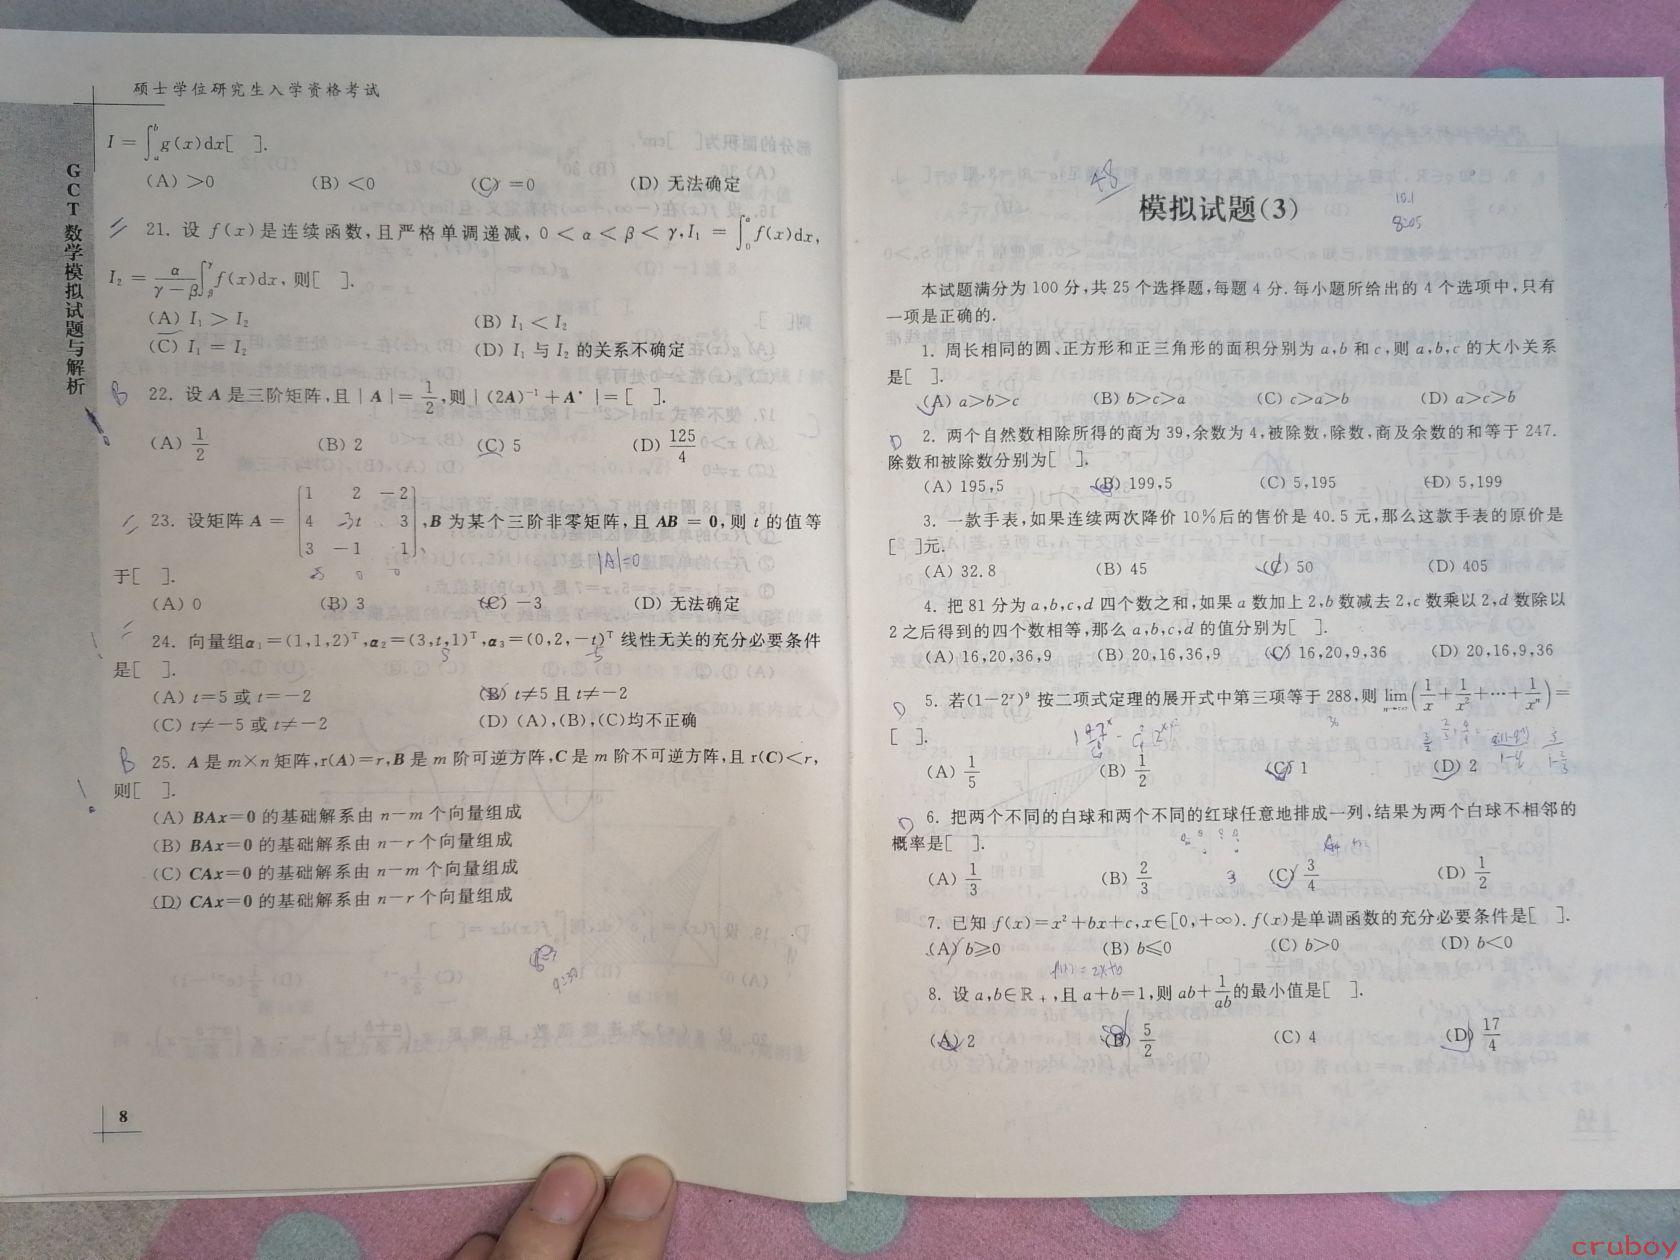 硕士学位研究生入学资格考试
GCT数学模拟试题与解析
I = ∫ₐᵇ g(x)dx[　].
(A) >0　(B) <0　(C) =0　(D) 无法确定
21. 设 f(x)是连续函数,且严格单调递减, 0<α<β<γ,I₁ = ∫₀^α f(x)dx,
I₂ = α/(γ−β) ∫_β^γ f(x)dx, 则[　].
(A) I₁ > I₂　(B) I₁ < I₂
(C) I₁ = I₂　(D) I₁ 与 I₂ 的关系不确定
B
22. 设 A 是三阶矩阵,且 | A |= 1/2,则 | (2A)⁻¹ + A* |= [　].
(A) 1/2　(B) 2　(C) 5　(D) 125/4
23. 设矩阵 A = [1 2 −2; 4 t 3; 3 −1 1],B 为某个三阶非零矩阵,且 AB = 0,则 t 的值等
于[　].
|A|=0
(A) 0　(B) 3　(C) −3　(D) 无法确定
24. 向量组α₁=(1,1,2)ᵀ,α₂=(3,t,1)ᵀ,α₃=(0,2,−t)ᵀ 线性无关的充分必要条件
是[　].
(A) t=5 或 t=−2　(B) t≠5 且 t≠−2
(C) t≠−5 或 t≠−2　(D) (A),(B),(C)均不正确
B
25. A 是 m×n 矩阵,r(A)=r,B 是 m 阶可逆方阵,C 是 m 阶不可逆方阵,且 r(C)<r,
则[　].
(A) BAx=0 的基础解系由 n−m 个向量组成
(B) BAx=0 的基础解系由 n−r 个向量组成
(C) CAx=0 的基础解系由 n−m 个向量组成
(D) CAx=0 的基础解系由 n−r 个向量组成
8
48
模拟试题(3)
10.1
本试题满分为 100 分,共 25 个选择题,每题 4 分. 每小题所给出的 4 个选项中,只有
一项是正确的.
1. 周长相同的圆、正方形和正三角形的面积分别为 a,b 和 c,则 a,b,c 的大小关系
是[　].
(A) a>b>c　(B) b>c>a　(C) c>a>b　(D) a>c>b
D
2. 两个自然数相除所得的商为 39,余数为 4,被除数,除数,商及余数的和等于 247.
除数和被除数分别为[　].
(A) 195,5　(B) 199,5　(C) 5,195　(D) 5,199
3. 一款手表,如果连续两次降价 10%后的售价是 40.5 元,那么这款手表的原价是
[　]元.
(A) 32.8　(B) 45　(C) 50　(D) 405
4. 把 81 分为 a,b,c,d 四个数之和,如果 a 数加上 2,b 数减去 2,c 数乘以 2,d 数除以
2 之后得到的四个数相等,那么 a,b,c,d 的值分别为[　].
(A) 16,20,36,9　(B) 20,16,36,9　(C) 16,20,9,36　(D) 20,16,9,36
D
5. 若(1−2ˣ)⁹ 按二项式定理的展开式中第三项等于 288,则 lim n→∞ (1/x + 1/x² + ⋯ + 1/xⁿ) =
[　].
(A) 1/5　(B) 1/2　(C) 1　(D) 2
D
6. 把两个不同的白球和两个不同的红球任意地排成一列,结果为两个白球不相邻的
概率是[　].
(A) 1/3　(B) 2/3　(C) 3/4　(D) 1/2
7. 已知 f(x)=x²+bx+c,x∈[0,+∞). f(x)是单调函数的充分必要条件是[　].
(A) b≥0　(B) b≤0　(C) b>0　(D) b<0
f(x) = 2x+b
8. 设 a,b∈R₊,且 a+b=1,则 ab+1/ab的最小值是[　].
(A) 2　(B) 5/2　(C) 4　(D) 17/4
cruboy